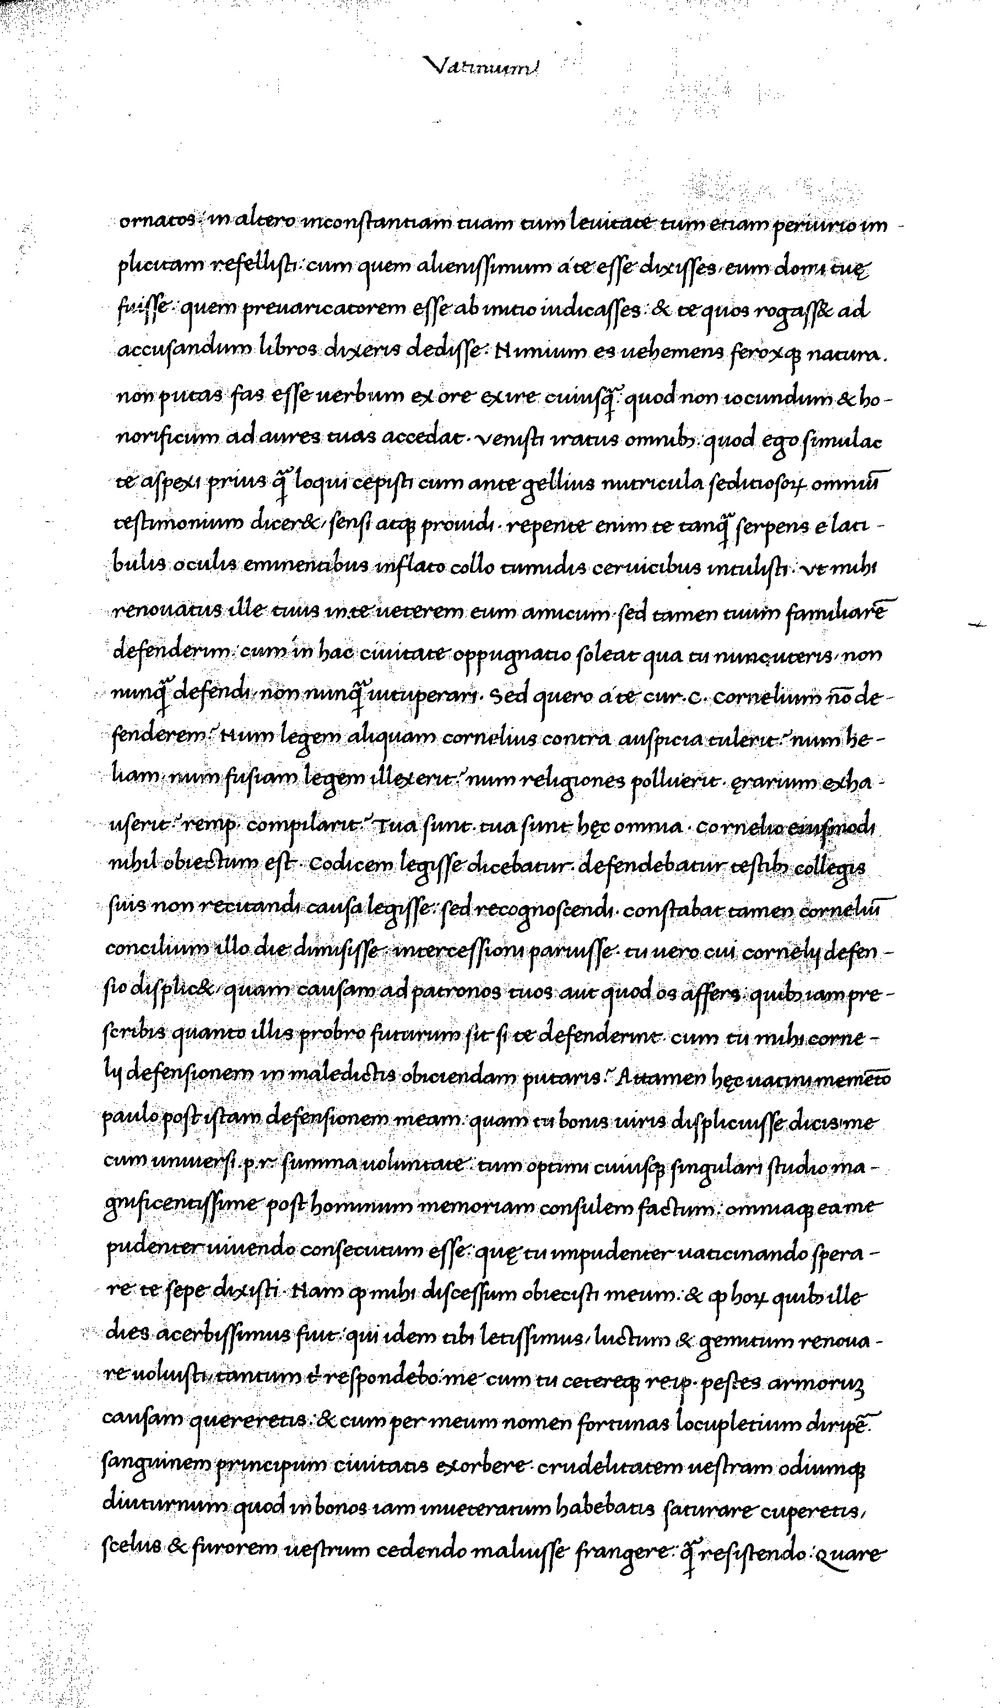 Vatinium
ornatos: in altero inconstantiam tuam cum leuitate tum etiam periurio im-
plicitam refellisti: cum quem alienissimum a te esse dixisses, eum domi tuę
fuisse: quem preuaricatorem esse ab initio iudicasses: & te quos rogass& ad
accusandum libros dixeris dedisse. Nimium es uehemens feroxq; natura.
non putas fas esse uerbum ex ore exire cuiusq̃: quod non iocundum & ho-
norificum ad aures tuas accedat. venisti iratus omnib;: quod ego simulac
te aspexi prius q̃ loqui cepisti cum ante gellius nutricula seditiosoꝝ omniū
testimonium dicer&, sensi atq; prouidi. repente enim te tanq̃ serpens e lati-
bulis oculis eminentibus inflato collo tumidis ceruicibus intulisti. vt mihi
renouatus ille tuus in te ueterem eum amicum sed tamen tuum familiarē
defenderim: cum in hac ciuitate oppugnatio soleat qua tu nunc uteris, non
nunq̃ defendi, non nunq̃ uituperari. Sed quero a te cur .C. Cornelium nō de-
fenderem? Num legem aliquam cornelius contra auspicia tulerit? num he-
liam, num fusiam legem illexerit? num religiones polluerit. ęrarium exha-
userit? remp. compilarit? Tua sunt. tua sunt hęc omnia. Cornelio eiusmodi
nihil obiectum est. Codicem legisse dicebatur. defendebatur testib; collegis
suis non recitandi causa legisse: sed recognoscendi. constabat tamen corneliū
concilium illo die dimisisse. intercessioni paruisse. tu uero cui cornelij defen-
sio displic&, quam causam ad patronos tuos aut quod os affers: quib; iam pre-
scribis quanto illis probro futurum sit si te defenderint. cum tu mihi corne-
lij defensionem in maledictis obiciendam putaris? Attamen hęc uatini memēto
paulo post istam defensionem meam: quam tu bonis uiris displicuisse dicis: me
cum uniuersi .p.r. summa uoluntate: tum optimi cuiusq; singulari studio ma-
gnificentissime post hominum memoriam consulem factum: omniaq; ea me
pudenter uiuendo consecutum esse: quę tu impudenter uaticinando spera-
re te sepe dixisti. Nam ꝙ mihi discessum obiecisti meum: & ꝙ hoꝝ quib; ille
dies acerbissimus fuit: qui idem tibi letissimus, luctum & gemitum renoua-
re uoluisti, tantum t̃ respondebo: me cum tu ceterq; reip. pestes armoruꝫ
causam quereretis: & cum per meum nomen fortunas locupletium diripē.
sanguinem principum ciuitatis exorbere: crudelitatem uestram odiumq;
diuturnum quod in bonos iam inueteratum habebatis saturare cuperetis,
scelus & furorem uestrum cedendo maluisse frangere: q̃ resistendo: Quare